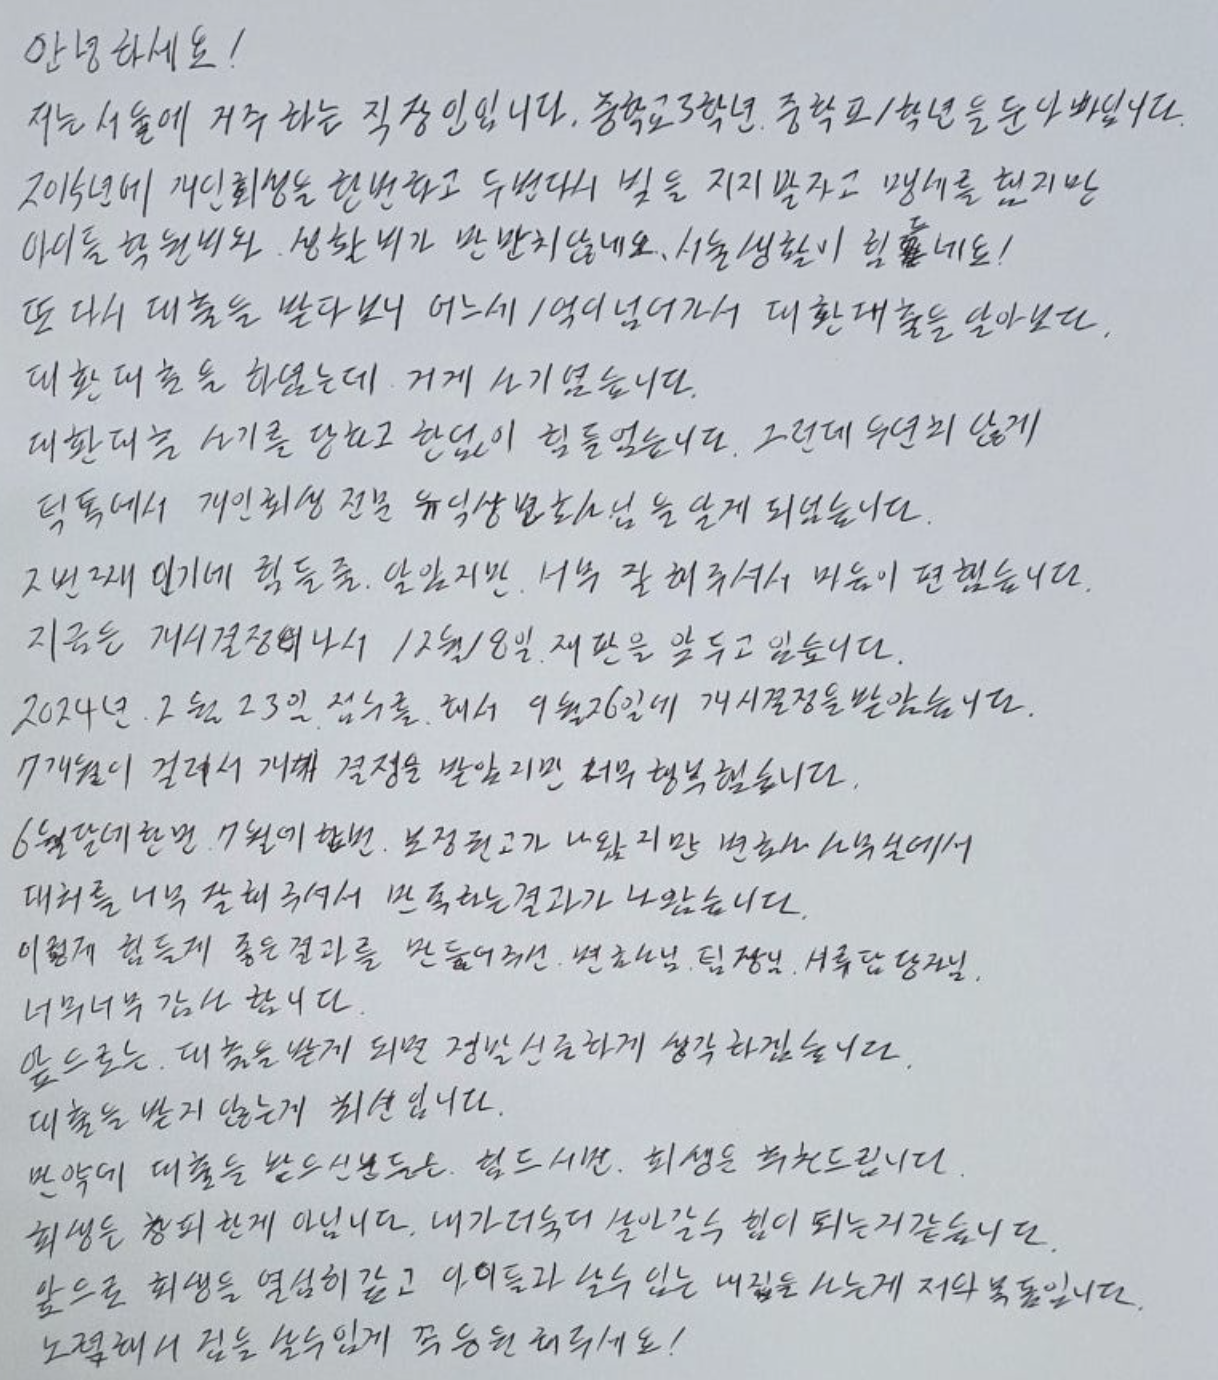 안녕하세요!
저는 서울에 거주 하는 직장인입니다. 중학교3학년. 중학교1학년을 둔 아빠입니다.
2015년에 개인회생을 한번하고 두번다시 빚을 지지말자고 맹세를 했지만
아이들 학원비와. 생활비가 만만치않네요. 서울생활이 힘드네요!
또 다시 대출을 받다보니 어느세 1억이넘어가서 대환대출을 알아보다.
대환대출을 하였는데. 거게 사기였습니다.
대환대출 사기를 당하고 한없이 힘들었습니다. 그런데 우연치 않게
틱톡에서 개인회생 전문 유익상변호사님을 알게 되었습니다.
2번째 인기에 힘들줄. 알았지만. 너무 잘 해주셔서 마음이 편했습니다.
지금은 개시결정이나서 12월18일.재판을 앞두고 있습니다.
2024년.2월 23일.접수를.해서 9월26일에 개시결정을받았습니다.
7개월이 걸려서 개시 결정을 받았지만 너무 행복했습니다.
6월달에한번.7월에 한번. 보정권고가 나왔지만 변호사 사무실에서
대처를 너무 잘해 주셔서 만족하는결과가 나왔습니다.
이렇게 힘들게 좋은결과를 만들어주신. 변호사님.팀장님.서류담당자님.
너무너무 감사 합니다.
앞으로는. 대출을받게 되면 정말신중하게 생각하겠습니다.
대출을 받지 않는게 최선입니다.
만약에 대출을 받으신분들은. 힘드시면. 회생을 추천드립니다.
회생은 창피한게 아닙니다. 내가더욱더 살아갈수 힘이 되는거같습니다.
앞으로 회생을 열심히갚고 아이들과 살수있는 내집을 사는게 저의목표입니다.
노력해서 집을 살수있게 꼭 응원 해주세요!